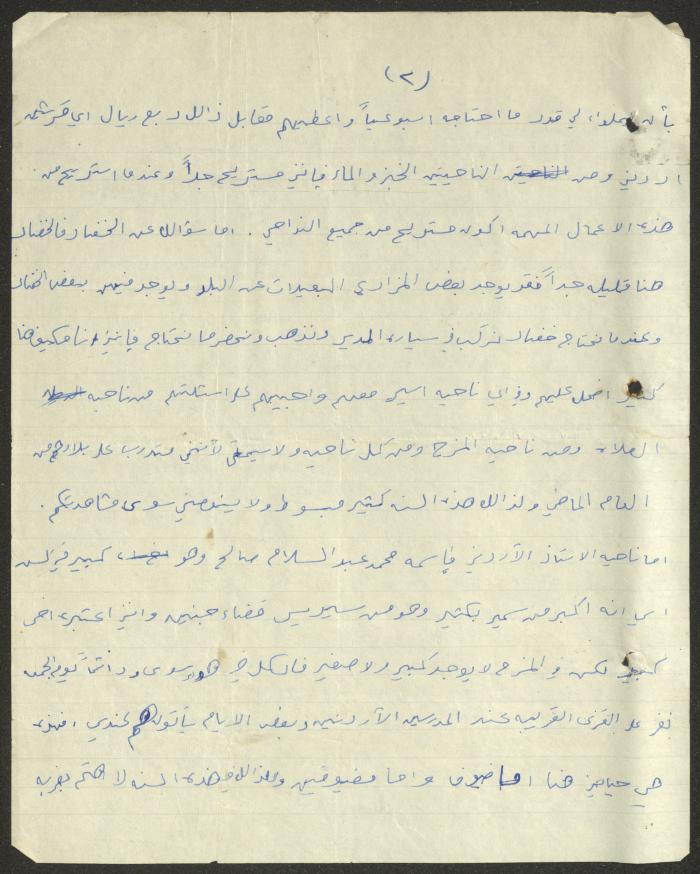 (٢)
بأن يحملوا لي قدر ما احتاجه اسبوعياً واعطيهم مقابل ذالك ربع ريال اي قرشين
اردني ومن الناحيتين الخبز والماء فإنني مستريح جداً وعندما استريح من
هذه الاعمال المهمه اكون مستريح من جميع النواحي . اما سؤالك عن الخضار فالخضار
هنا قليله جداً فقد يوجد بعض المزارع البعيدات عن البلد ويوجد فيهن بعض الخضار
وعندما نحتاج خضار نركب في سيارة المدير ونذهب ونحضر ما نحتاج فإنني انا مكيف هنا
كثير اضحك عليهم وفي اي ناحيه اسير معهم واجيبهم على اسئلتهم من ناحيه
الصلاه ومن ناحية المزح ومن كل ناحيه ولا سيما لأنني متدرب على بلادهم من
العام الماضي ولذالك هذه السنه كثير مبسوط ولا ينقصني سوى مشاهدتكم .
اما ناحية الاستاذ الأردني فإسمه محمد عبد السلام صالح وهو كبير في السن
اي انه اكبر من سمير بكثير وهو من سيريس قضاء جنين وانني اعتبره اخي
كبير لكن في المزح لا يوجد كبير ولا صغير فالكل سوى ودائماً يوم الجمعه
نفر على القرى القريبه عند المدرسين الأردنين وبعض الايام يأتوا هم عندي فهذه
هي حياتي هنا اما ضيوف واما مضيوفين ولذالك في هذه السنه لا اهتم بغربه